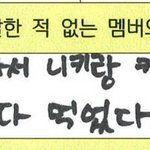 한 적 없는 멤버
서 니키랑
다 먹었다